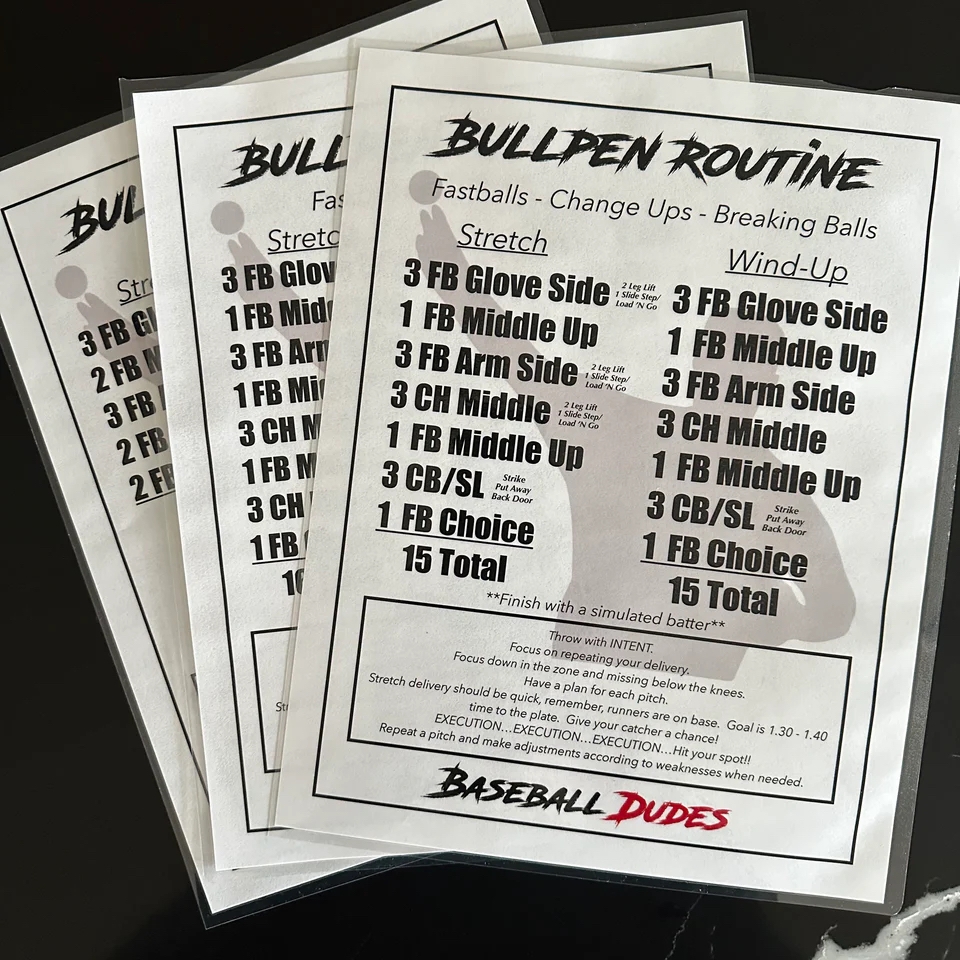 BULLPEN ROUTINE
Fastballs - Change Ups - Breaking Balls
Stretch
3 FB Glove Side
2 Leg Lift
1 Slide Step/
Load 'N Go
1 FB Middle Up
3 FB Arm Side
2 Leg Lift
1 Slide Step/
Load 'N Go
3 CH Middle
2 Leg Lift
1 Slide Step/
Load 'N Go
1 FB Middle Up
3 CB/SL
Strike
Put Away
Back Door
1 FB Choice
15 Total
Wind-Up
3 FB Glove Side
1 FB Middle Up
3 FB Arm Side
3 CH Middle
1 FB Middle Up
3 CB/SL
Strike
Put Away
Back Door
1 FB Choice
15 Total
**Finish with a simulated batter**
Throw with INTENT.
Focus on repeating your delivery.
Focus down in the zone and missing below the knees.
Have a plan for each pitch.
Stretch delivery should be quick, remember, runners are on base. Goal is 1.30 - 1.40
time to the plate. Give your catcher a chance!
EXECUTION...EXECUTION...EXECUTION...Hit your spot!!
Repeat a pitch and make adjustments according to weaknesses when needed.
BASEBALL DUDES
BULL
Fas
Stretc
3 FB Glov
1 FB Midd
3 FB Arm
1 FB Mi
3 CH M
1 FB M
3 CH
1 FB
BUL
Str
3 FB Gl
2 FB M
3 FB
2 FB
2 FB